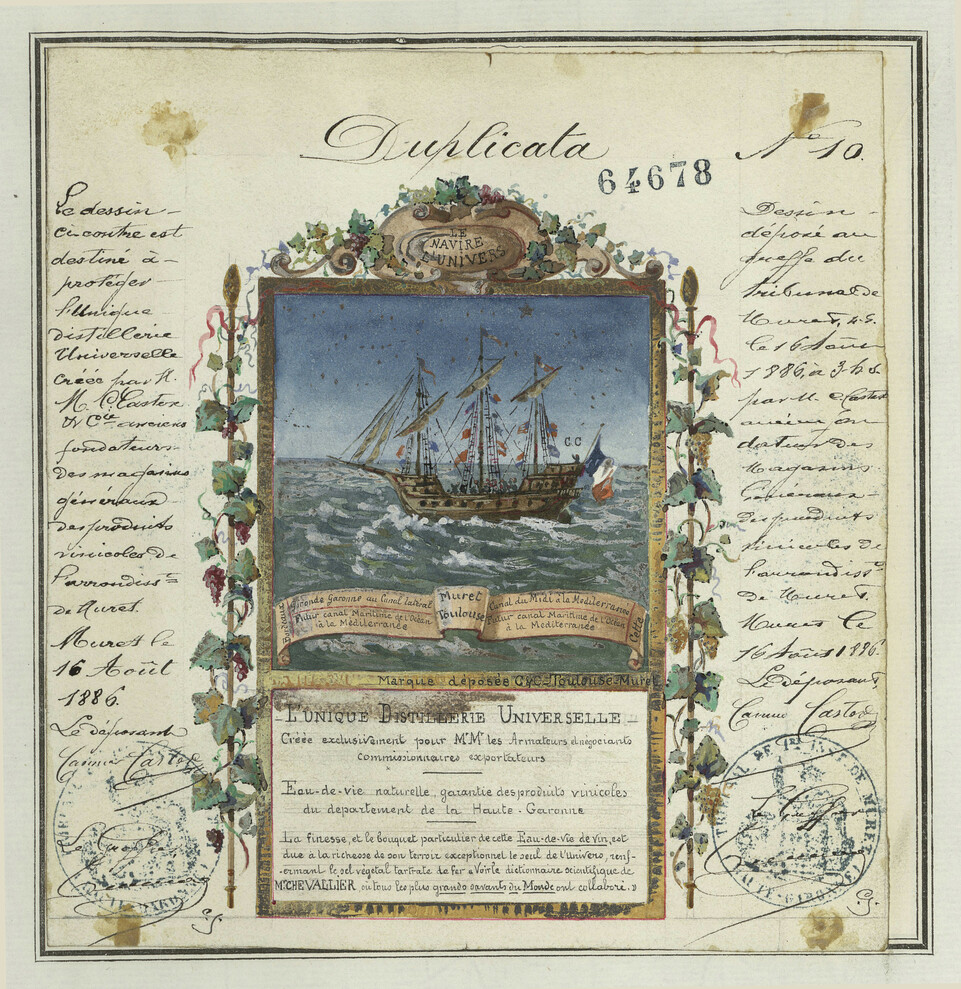 Duplicata
Nº 10.
64678
Le dessin
ci-contre est
destiné à
protéger
l'Unique
distillerie
Universelle
créée par
M. C. Castex
& Cie anciens
fondateurs
des magasins
généraux
des produits
vinicoles de
l'arrondisst
de Muret.
Muret le
16 Août
1886.
Le déposant
LE
NAVIRE
L'UNIVERS
C C
Gironde Garonne au Canal latéral
Futur canal Maritime de l'Océan
à la Méditerranée
Muret
Toulouse
Canal du Midi à la Méditerranée
Futur canal Maritime de l'Océan
à la Méditerranée
Cette
Marque déposée C&C Toulouse-Muret
L'UNIQUE DISTILLERIE UNIVERSELLE
Créée exclusivement pour Mrs Mrs les Armateurs et négociants
commissionnaires exportateurs
Eau-de-vie naturelle, garantie des produits vinicoles
du département de la Haute-Garonne
La finesse, et le bouquet particulier de cette Eau-de-vie de Vin, est
due à la richesse de son terroir exceptionnel le seul de l'Univers, renf-
ormant le sel végétal tartrate de fer « Voir le dictionnaire scientifique de
Mr CHEVALLIER où tous les plus grands savants du Monde ont collaboré. »
Dessin
déposé au
greffe du
tribunal de
Muret,
le 16 Août
1886, à 3 h
par M. C. Castex
ancien fon
dateur des
Magasins
Généraux
des produits
vinicoles de
l'arrondisst
de Muret.
Muret le
16 Août 1886.
Le déposant,
Le Greffier